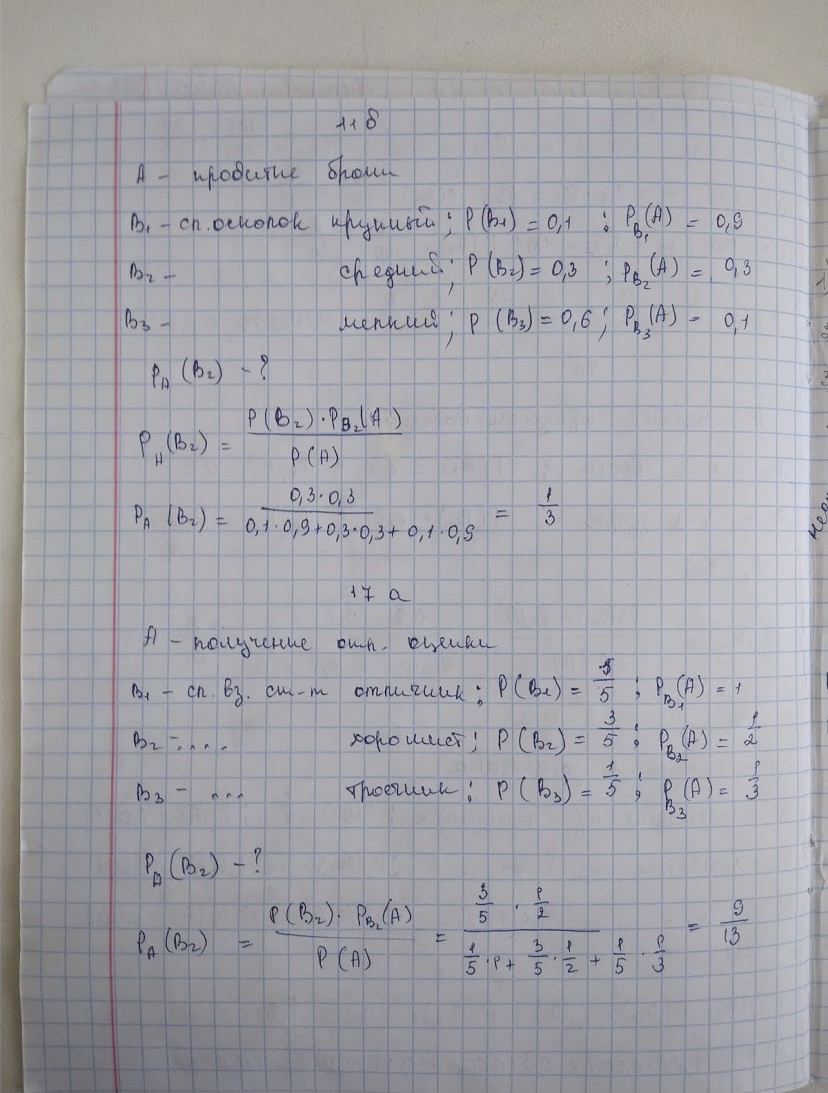 11б
A - пробитие брони
B₁ - сп. осколок крупный; P(B₁) = 0,1 ; P_B₁(A) = 0,9
B₂ - средний; P(B₂) = 0,3 ; P_B₂(A) = 0,3
B₃ - мелкий; P(B₃) = 0,6 ; P_B₃(A) - 0,1
P_A(B₂) - ?
P_A(B₂) = P(B₂)·P_B₂(A) / P(A)
P_A(B₂) = 0,3·0,3 / 0,1·0,9+0,3·0,3+0,1·0,9 = 1/3
17 а
A - получение отл. оценки
B₁ - сп. вз. ст-т отличник; P(B₁) = /5 ; P_B₁(A) = 1
B₂ - .... хорошист; P(B₂) = 3/5 ; P_B₂(A) = 1/2
B₃ - ... троечник; P(B₃) = 1/5 ; P_B₃(A) = 1/3
P_A(B₂) - ?
P_A(B₂) = P(B₂)·P_B₂(A) / P(A) = 3/5 · 1/2 / 1/5·1+ 3/5·1/2 + 1/5·1/3 = 9/13